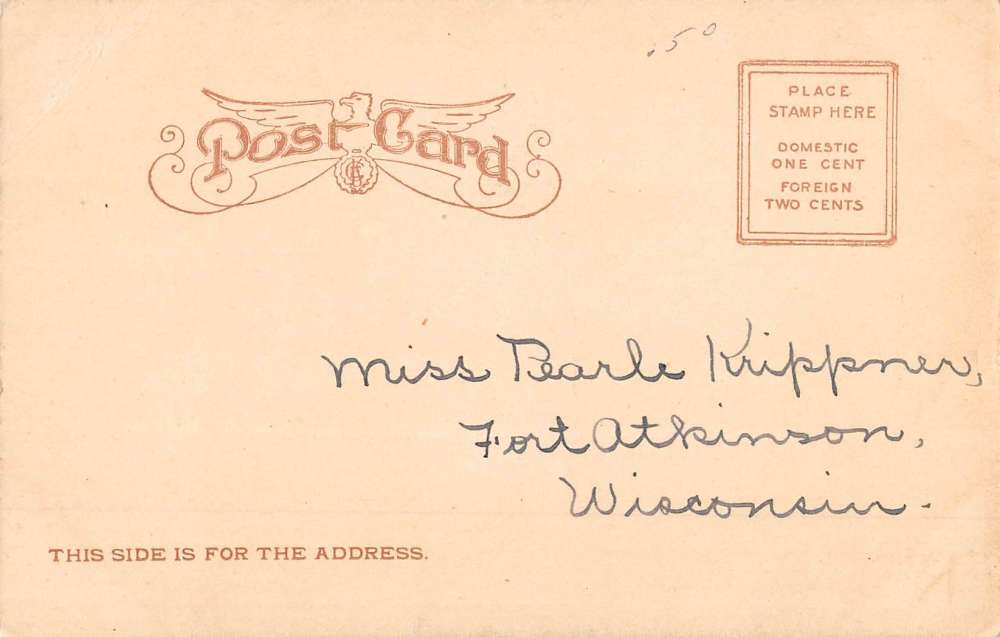 .50
Post Card
PLACE
STAMP HERE
DOMESTIC
ONE CENT
FOREIGN
TWO CENTS
Miss Pearle Krippner,
Fort Atkinson,
Wisconsin.
THIS SIDE IS FOR THE ADDRESS.